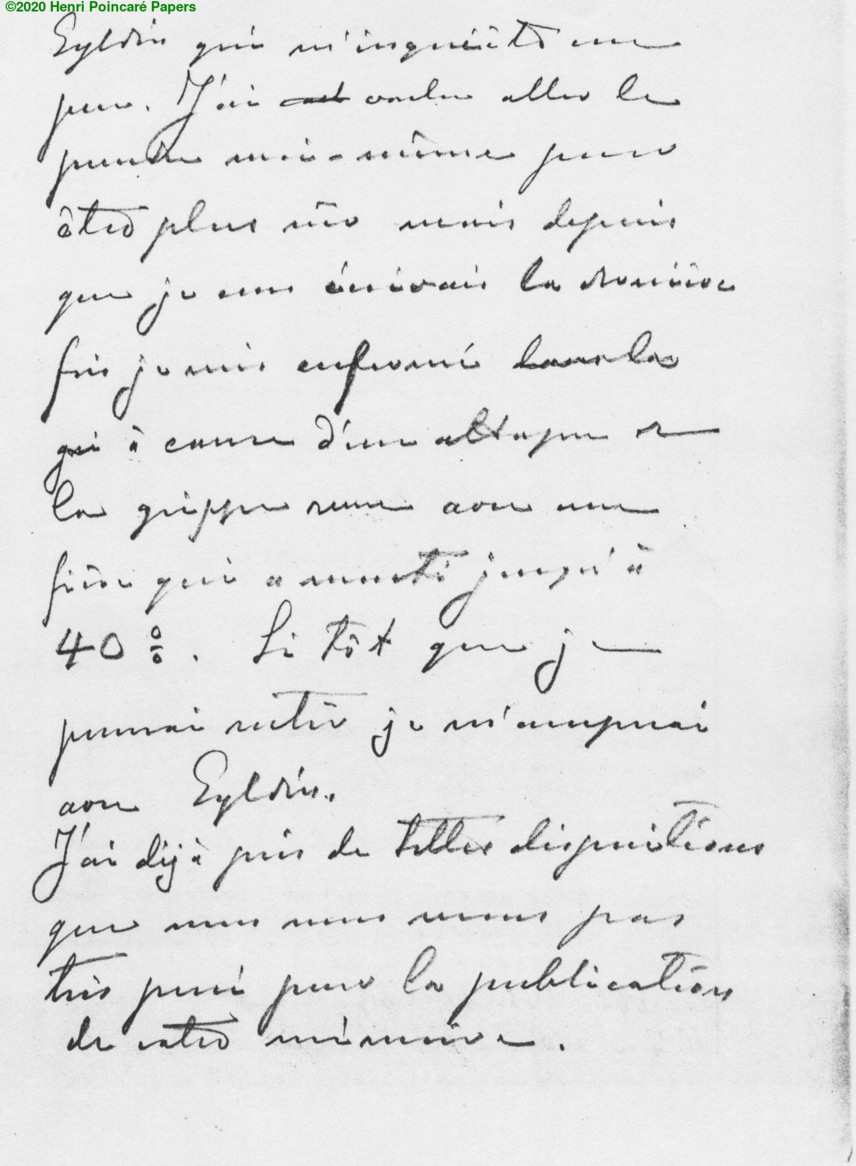 ©2020 Henri Poincaré Papers
Gyldén qui m'inquiète un
peu. J'ai voulu aller le
prendre moi-même pour
être plus sûr mais depuis
que je vous écrivais la dernière
fois je suis enfermé
à cause d'une attaque de
la grippe russe avec une
fièvre qui a monté jusqu'à
40 %. Si tôt que je
pourrai sortir je m'occuperai
avec Gyldén.
J'ai déjà pris de telles dispositions
que nous serons pas
très pressé pour la publication
de votre mémoire.